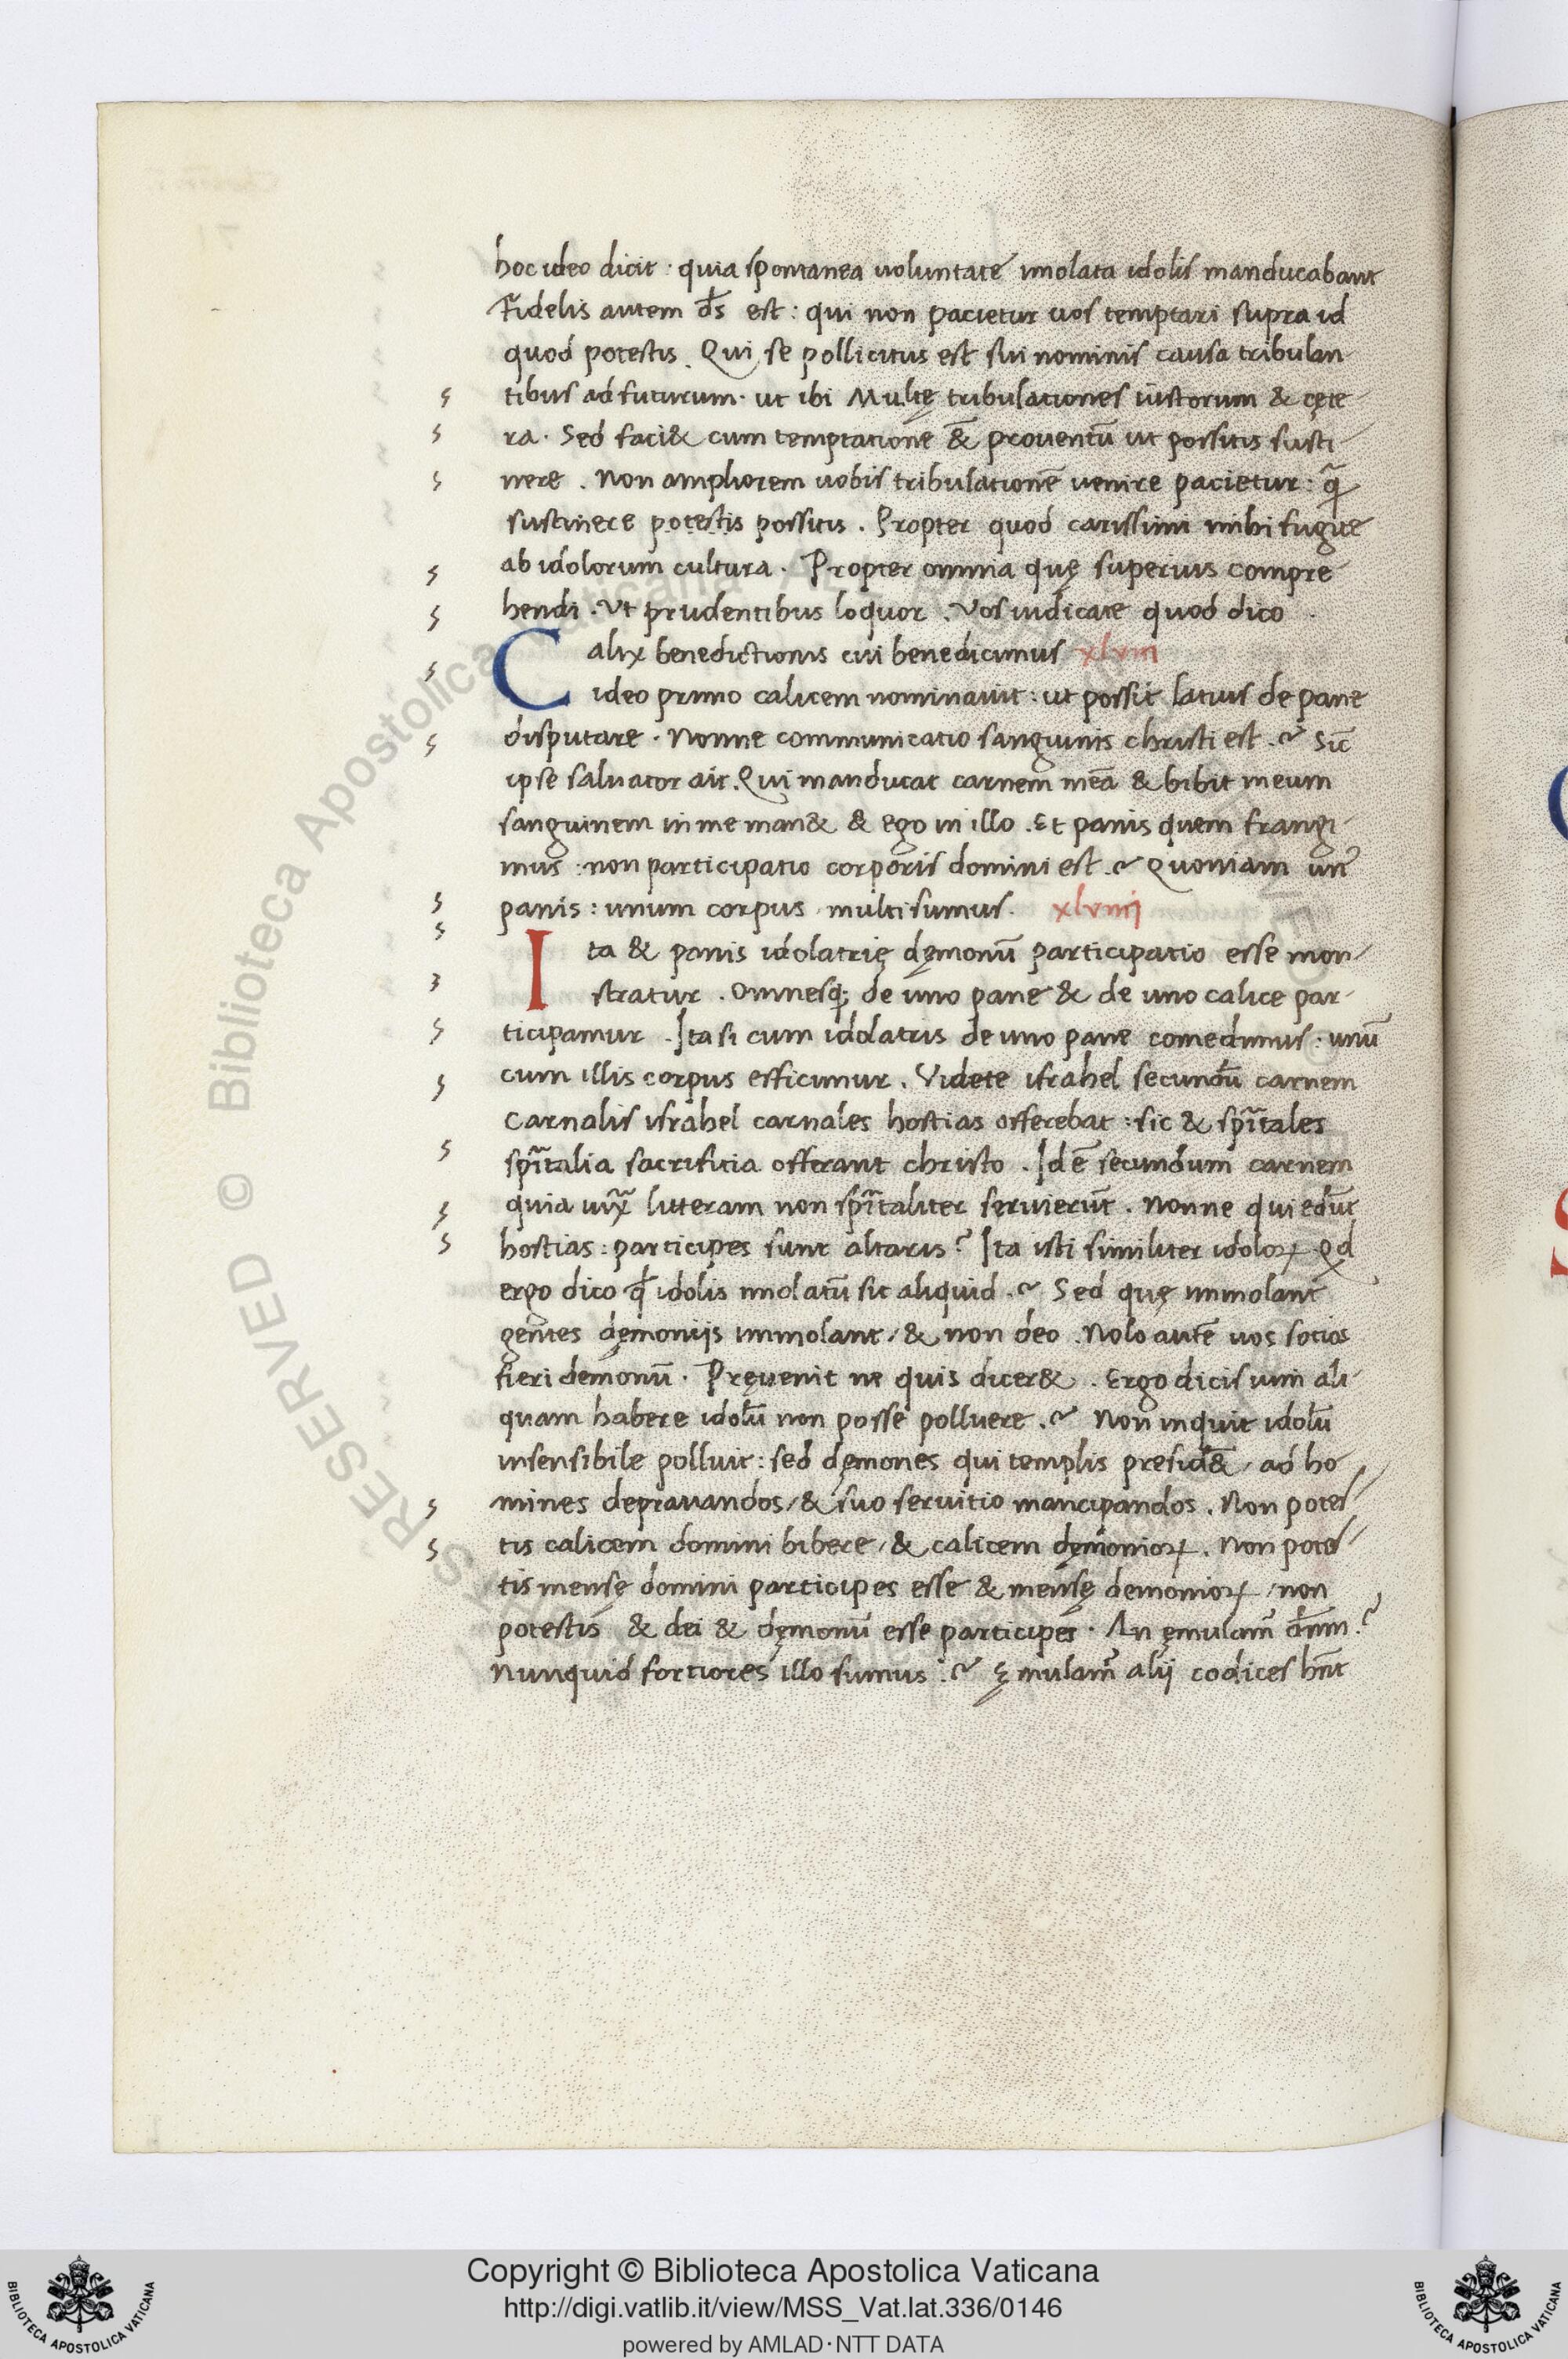 hoc ideo dicit : quia spontanea uoluntate imolata idolis manducabant
Fidelis autem ds̄ est : qui non pacietur uos temptari supra id
quod potestis . Qui se pollicitus est sui nominis causa tribulan-
tibus adfuturum · ut ibi Multę tribulationes iustorum & cęte-
ra · Sed faci& cum temptatione &̄ prouentū ut possitis susti-
nere . Non ampliorem uobis tribulationē uenire pacietur : q̄
sustinere potestis possitis . Propter quod carissimi mihi fugite
ab idolorum cultura · Propter omnia quę superius compre-
hendi . Vt prudentibus loquor . Vos iudicate quod dico .
Calix benedictionis cui benedicimus xlviii
ideo primo calicem nominauit : ut possit latius de pane
disputare · Nonne communicatio sanguinis christi est .~ Sic̄
ipse saluator ait . Qui manducat carnem meā & bibit meum
sanguinem in me man& & ego in illo . Et panis quem frangi-
mus : non participatio corporis domini est .~ Quoniam un᾿
panis : unum corpus multi sumus . xlviiij
Ita & panis idolatrię dęmonū participatio esse mon-
stratur . Omnesq; de uno pane & de uno calice par-
ticipamur . Ita si cum idolatris de uno pane comedimus : unū
cum illis corpus efficimur . Videte israhel secundū carnem
Carnalis israhel carnales hostias offerebat : sic & spīītales
spīītalia sacrificia offerant christo . Id ē secundum carnem
quia iuxͣ litteram non spīītaliter seruierūt . Nonne qui edūt
hostias : participes sunt altaris ? Ita isti similiter idoloꝝ Qd
ergo dico qd̄ idolis imolatū sit aliquid .~ Sed quę immolant
gentes dęmoniis immolant / & non deo . Nolo autē uos socios
fieri demonū · Pręuenit ne quis dicer& . Ergo dicis uim ali-
quam habere idolū non posse polluere .~ Non inquit idolū
insensibile polluit : sed dęmones qui templis presid&̄ / ad ho-
mines deprauandos / & suo seruitio mancipandos . Non potes-
tis calicem domini bibere / & calicem dęmonioꝝ . Non potes-
tis mensę domini participes esse & mensę demonioꝝ / non
potestis & dei & dęmonū esse participes · An ęmulam᾿ dn̄m ?
Nunquid fortiores illo sumus .~ Ęmulam᾿ alij codices hn̄t
Copyright © Biblioteca Apostolica Vaticana
http://digi.vatlib.it/view/MSS_Vat.lat.336/0146
powered by AMLAD·NTT DATA